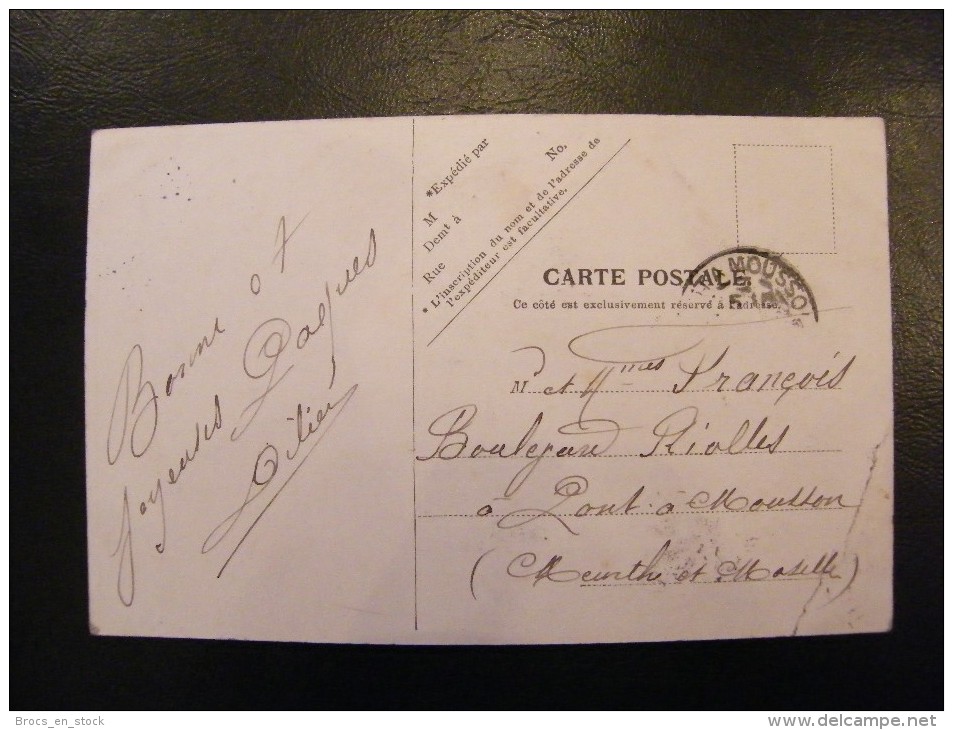 Bonne et
Joyeuses Pâques
*Expédié par
No.
M
Demt à
Rue
* L'inscription du nom et de l'adresse de
l'expéditeur est facultative.
CARTE POSTALE
Ce côté est exclusivement réservé à l'adresse.
MOUSSO
M et Mmes François
Boulevard Riolles
à Pont-à-Mousson
(Meurthe et Moselle)
Brocs_en_stock
www.delcampe.net